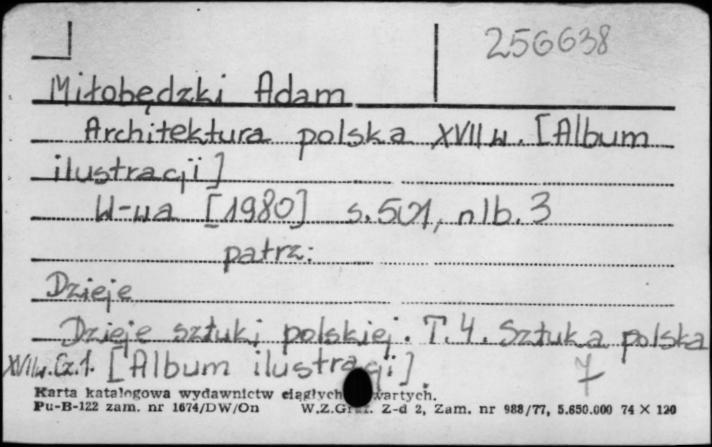 256638
Miłobędzki Adam
Architektura polska XVII w. [Album
ilustracji]
W-wa [1980] s. 501, nlb. 3
patrz:
Dzieje
Dzieje sztuki polskiej. T. 4. Sztuka polska
XVII w. Cz. 1. [Album ilustracji].
Karta katalogowa wydawnictw ciągłych wartych.
Pu-B-122 zam. nr 1674/DW/On W.Z.Graf. Z-d 2, Zam. nr 988/77, 5.650.000 74 × 120